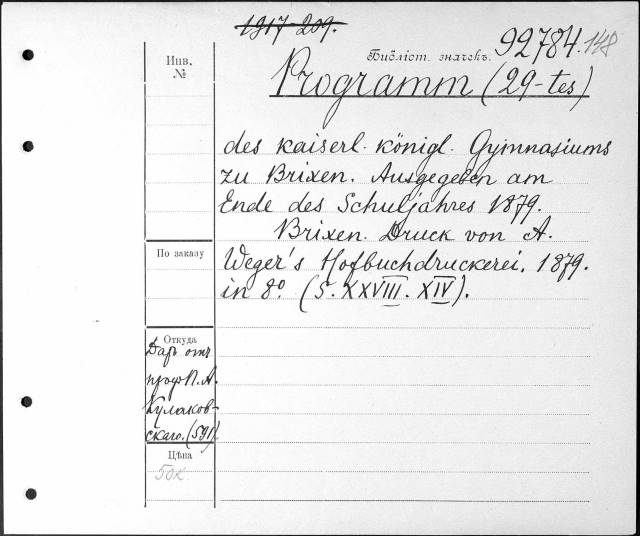 1917-209.
Библіот. значекъ. 92784. 148
Инв.
№
Programm (29-tes)
des kaiserl. königl. Gymnasiums
zu Brixen. Ausgegeben am
Ende des Schuljahres 1879.
Brixen. Druck von A.
Weger's Hofbuchdruckerei. 1879.
in 8º. (S. XXVIII. XIV).
По заказу
Откуда
Даръ отъ
проф. П. А.
Кулаков-
скаго. (591).
Цѣна
50к.